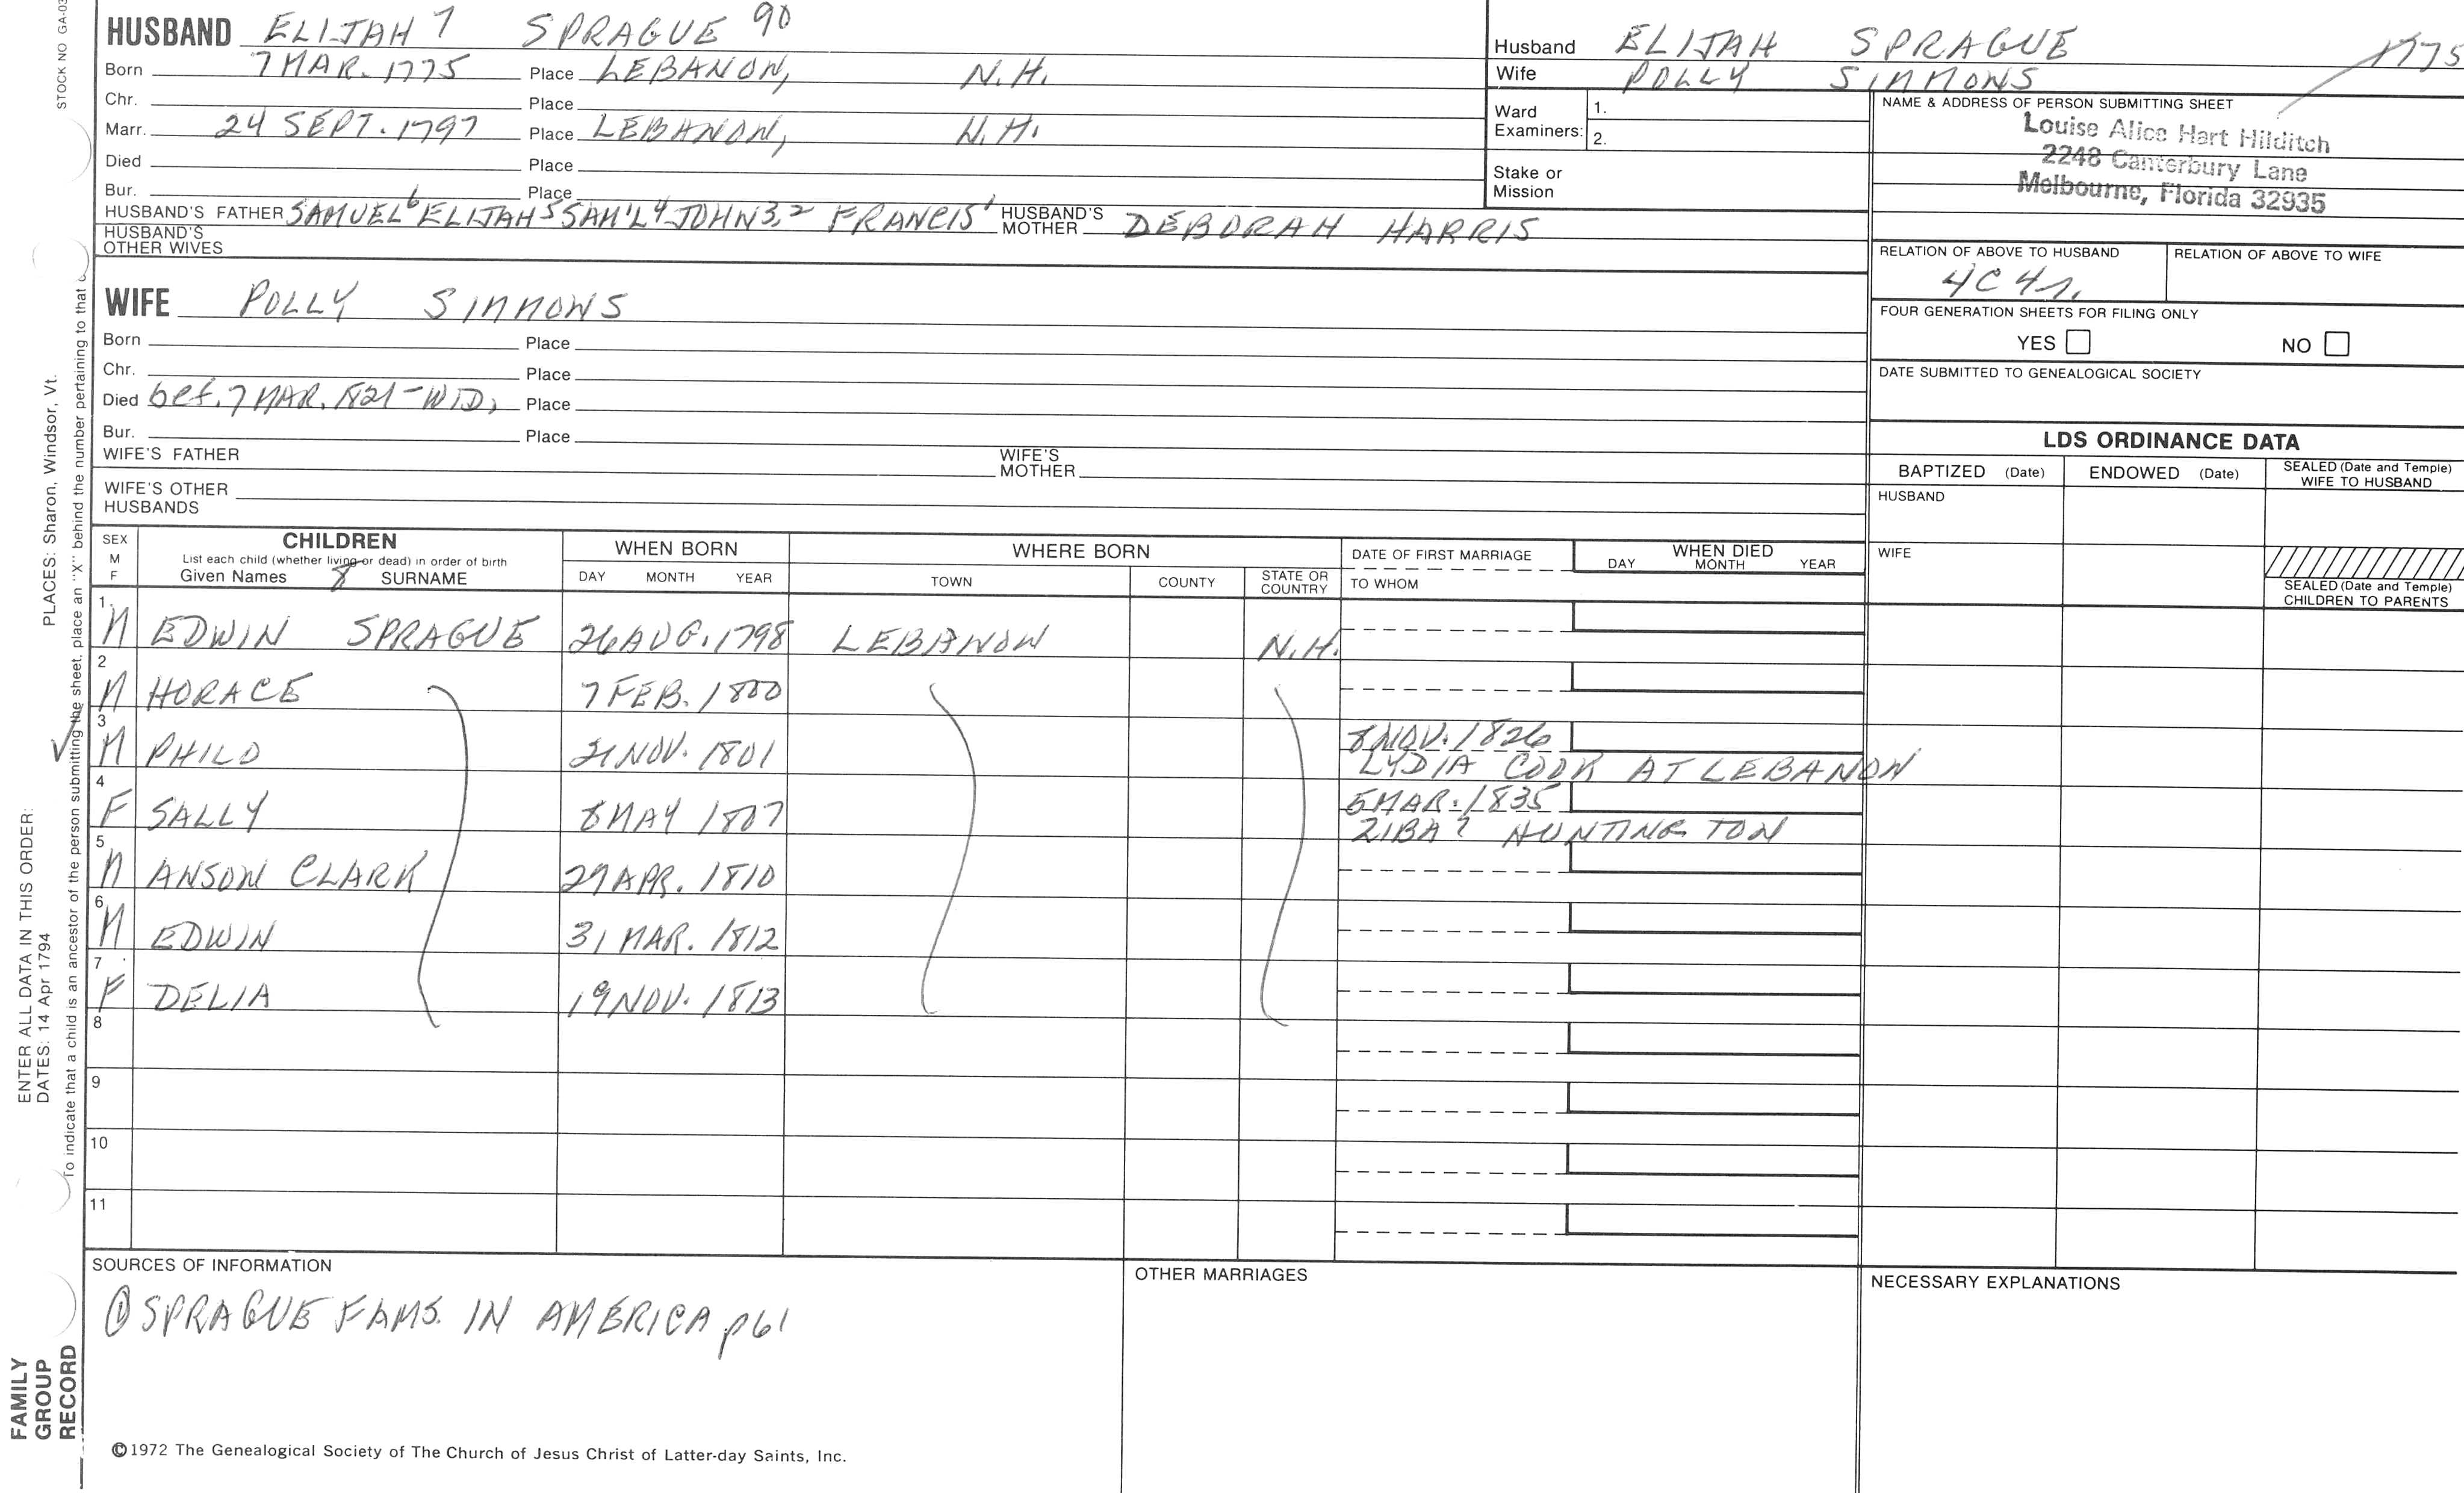 STOCK NO GA-03
HUSBAND ELIJAH 7 SPRAGUE 90
Born 7 MAR. 1775 Place LEBANON, N.H.
Chr. Place
Marr. 24 SEPT. 1797 Place LEBANON, N.H.
Died Place
Bur. Place
HUSBAND'S FATHER SAMUEL 6 ELIJAH 5 SAM'L 4 JOHN 3,2 FRANCIS 1 HUSBAND'S MOTHER DEBORAH HARRIS
HUSBAND'S OTHER WIVES
Husband ELIJAH SPRAGUE 1775
Wife POLLY SIMMONS
Ward Examiners: 1.
2.
Stake or Mission
NAME & ADDRESS OF PERSON SUBMITTING SHEET
Louise Alice Hart Hilditch
2248 Canterbury Lane
Melbourne, Florida 32935
RELATION OF ABOVE TO HUSBAND RELATION OF ABOVE TO WIFE
4C 4r.
FOUR GENERATION SHEETS FOR FILING ONLY
YES NO
DATE SUBMITTED TO GENEALOGICAL SOCIETY
WIFE POLLY SIMMONS
Born Place
Chr. Place
Died bef. 7 MAR. 1821 - WID. Place
Bur. Place
WIFE'S FATHER WIFE'S MOTHER
WIFE'S OTHER HUSBANDS
LDS ORDINANCE DATA
BAPTIZED (Date) ENDOWED (Date) SEALED (Date and Temple) WIFE TO HUSBAND
HUSBAND
WIFE
SEALED (Date and Temple) CHILDREN TO PARENTS
SEX M F CHILDREN WHEN BORN WHERE BORN DATE OF FIRST MARRIAGE WHEN DIED
List each child (whether living or dead) in order of birth
Given Names 8 SURNAME DAY MONTH YEAR TOWN COUNTY STATE OR COUNTRY TO WHOM DAY MONTH YEAR
1. M EDWIN SPRAGUE 26 AUG. 1798 LEBANON N.H.
2 M HORACE 7 FEB. 1800
3 M PHILO 21 NOV. 1801 8 NOV. 1826
LYDIA COOK AT LEBANON
4 F SALLY 8 MAY 1807 5 MAR. 1835
ZIBA? HUNTINGTON
5 M ANSON CLARK 29 APR. 1810
6 M EDWIN 31 MAR. 1812
7 F DELIA 19 NOV. 1813
8
9
10
11
SOURCES OF INFORMATION
① SPRAGUE FAMS. IN AMERICA p61
OTHER MARRIAGES
NECESSARY EXPLANATIONS
©1972 The Genealogical Society of The Church of Jesus Christ of Latter-day Saints, Inc.
FAMILY GROUP RECORD
ENTER ALL DATA IN THIS ORDER:
DATES: 14 Apr 1794 PLACES: Sharon, Windsor, Vt.
To indicate that a child is an ancestor of the person submitting the sheet, place an "X" behind the number pertaining to that